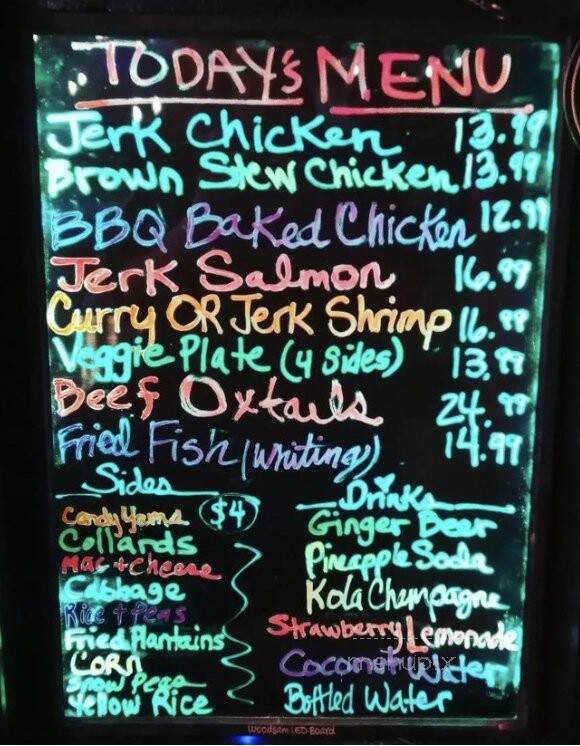 TODAY'S MENU
Jerk Chicken 13.99
Brown Stew Chicken 13.99
BBQ Baked Chicken 12.99
Jerk Salmon 16.99
Curry OR Jerk Shrimp 16.99
Veggie Plate (4 Sides) 13.99
Beef Oxtails 24.99
Fried Fish (Whiting) 14.99
Sides
$4
Candy Yams
Collards
Mac + Cheese
Cabbage
Rice + Peas
Fried Plantains
CORN
Snow Peas
Yellow Rice
Drinks
Ginger Beer
Pineapple Soda
Kola Champagne
Strawberry Lemonade
Coconut Water
Bottled Water
menupix
Woodsam LED Board